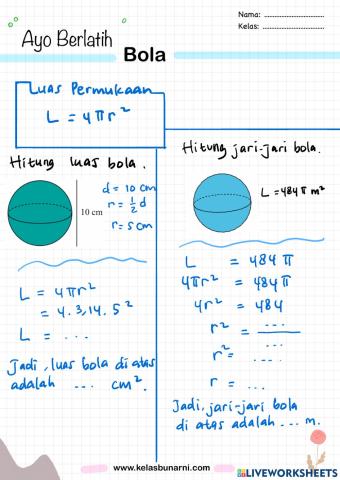 Nama: ..............................
Kelas: ..............................
Ayo Berlatih
Bola
Luas Permukaan
L = 4πr²
Hitung luas bola.
d = 10 cm
r = ½ d
r = 5 cm
10 cm
L = 4πr²
= 4.3,14.5²
L = ...
Jadi, luas bola di atas
adalah ... cm².
Hitung jari-jari bola.
L = 484 π m²
L = 484 π
4πr² = 484 π
4r² = 484
r² = .../...
r² = ...
r = ...
Jadi, jari-jari bola
di atas adalah ... m.
www.kelasbunarni.com
LIVEWORKSHEETS